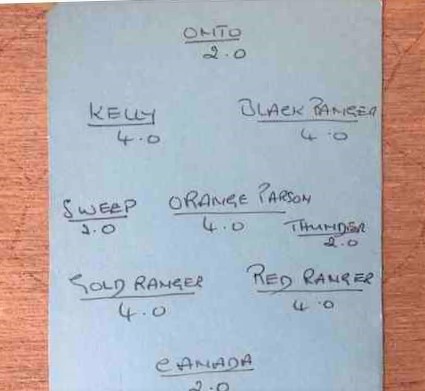 ONTO
2.0
KELLY BLACK RANGER
4.0 4.0
SWEEP ORANGE PARSON
2.0 4.0 THUNDER
2.0
GOLD RANGER RED RANGER
4.0 4.0
CANADA
2.0